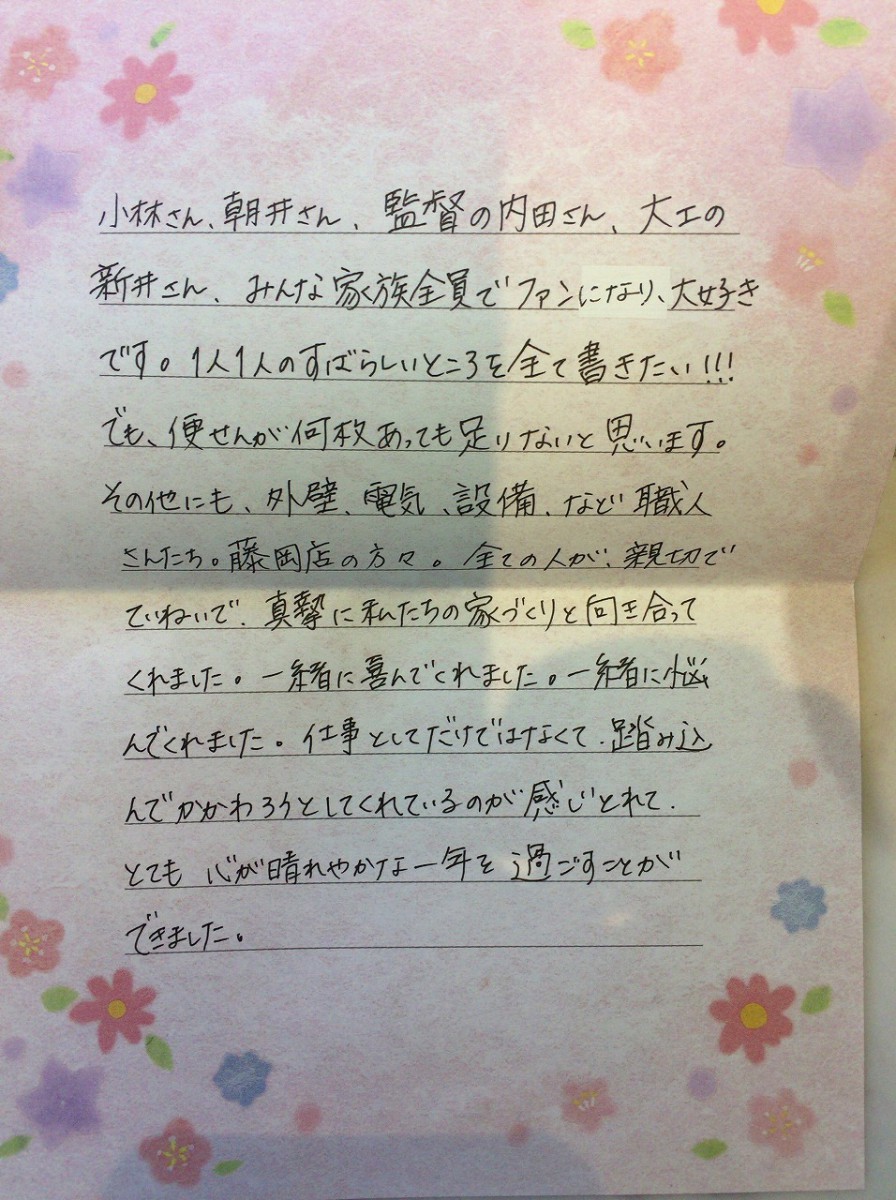 小林さん、朝井さん、監督の内田さん、大工の
新井さん、みんな家族全員でファンになり、大好き
です。1人1人のすばらしいところを全て書きたい!!!
でも、便せんが何枚あっても足りないと思います。
その他にも、外壁、電気、設備、など職人
さんたち。藤岡店の方々。全ての人が、親切で
ていねいで、真摯に私たちの家づくりと向き合って
くれました。一緒に喜んでくれました。一緒に悩
んでくれました。仕事としてだけではなくて、踏み込
んでかかわろうとしてくれているのが感じとれて、
とても心が晴れやかな一年を過ごすことが
できました。